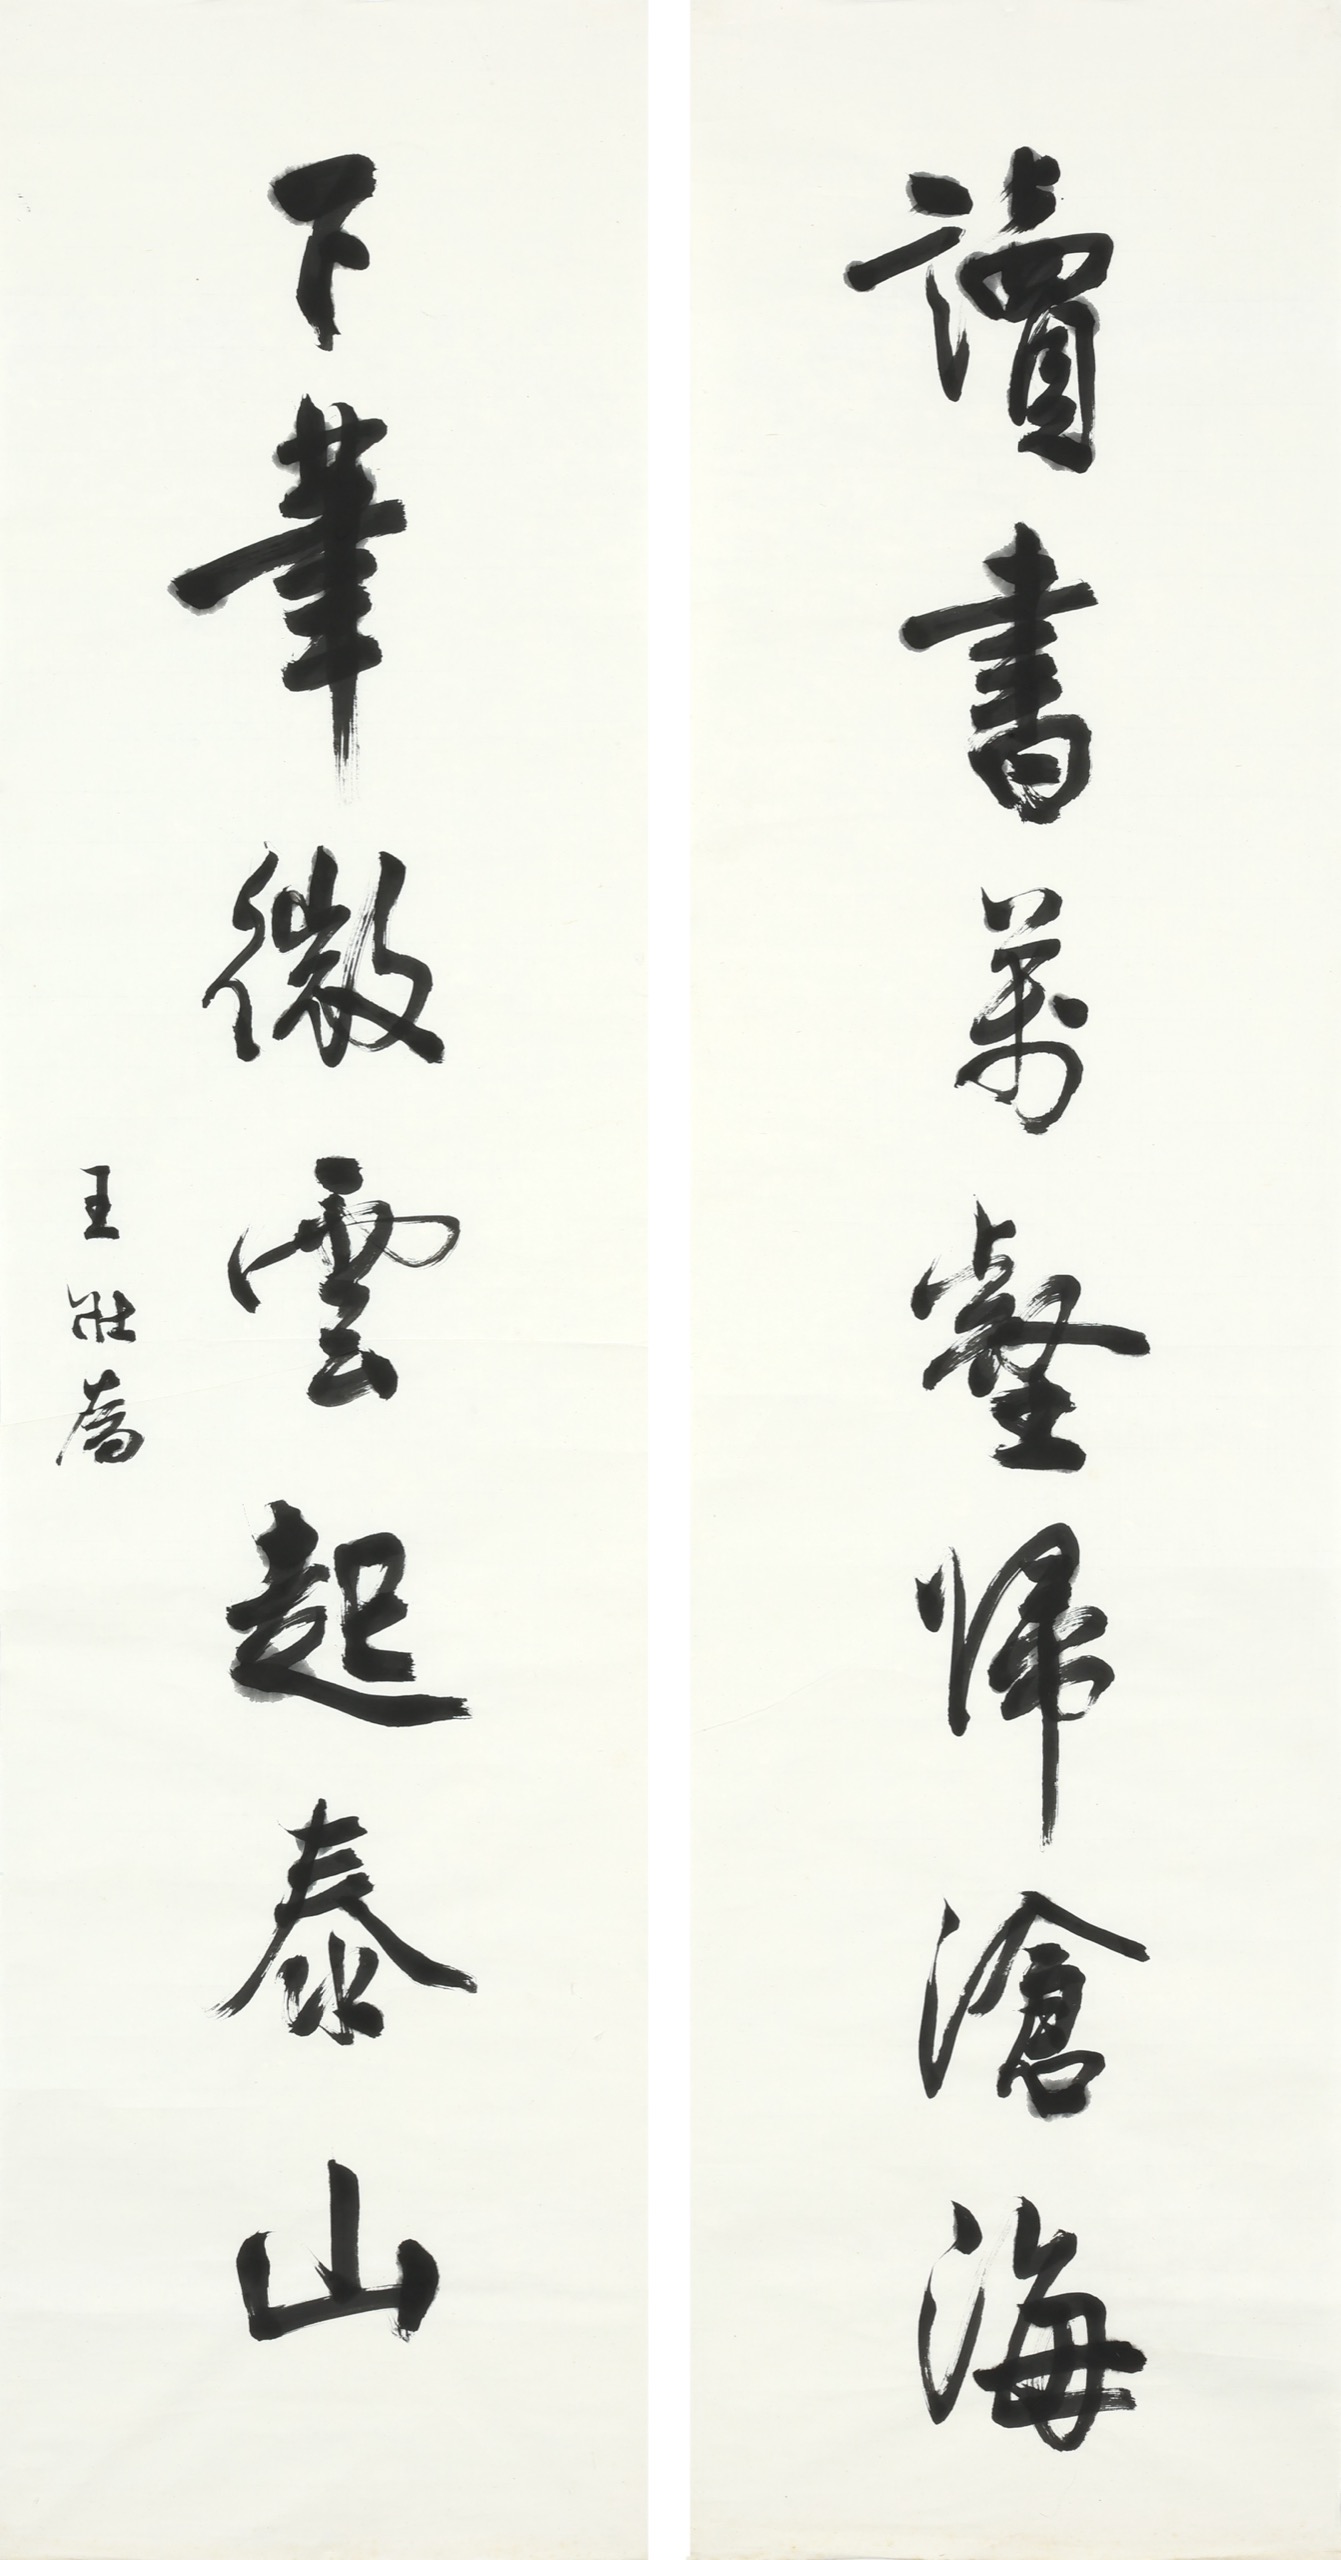 讀書萬壑歸滄海
下筆微雲起泰山
王壯為